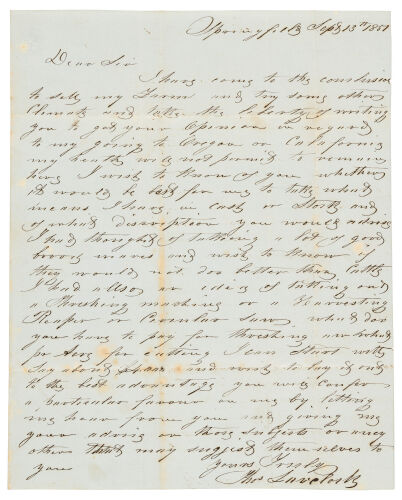 Springfield Sept 13th 1851
Dear Sir
I have come to the conclusion
to sell my Farm and try some other
Climate and take the Liberty of writing
you to get your Opinion in regard
to my going to Oregon or California
my health will not permit to remain
here I wish to know of you whether
it would be best for me to take what
means I have in cash or Stock and
of what discription you would advise
I had thought of takeing a lot of good
brood mares and wish to know if
they would not doo better than cattle
I had allso an idea of takeing out
a Threshing mashine or a Harvesting
Reaper or Circular saw what doo
you have to pay for threshing and what
pr Acre for cutting I can Start with
Say about and wish to lay it out
to the best advantage you will Confer
a particular favour on me by letting
me hear from you and giving me
your advise on those subjects or any
others that may suggest themselves to
you Yours Truly
Thos